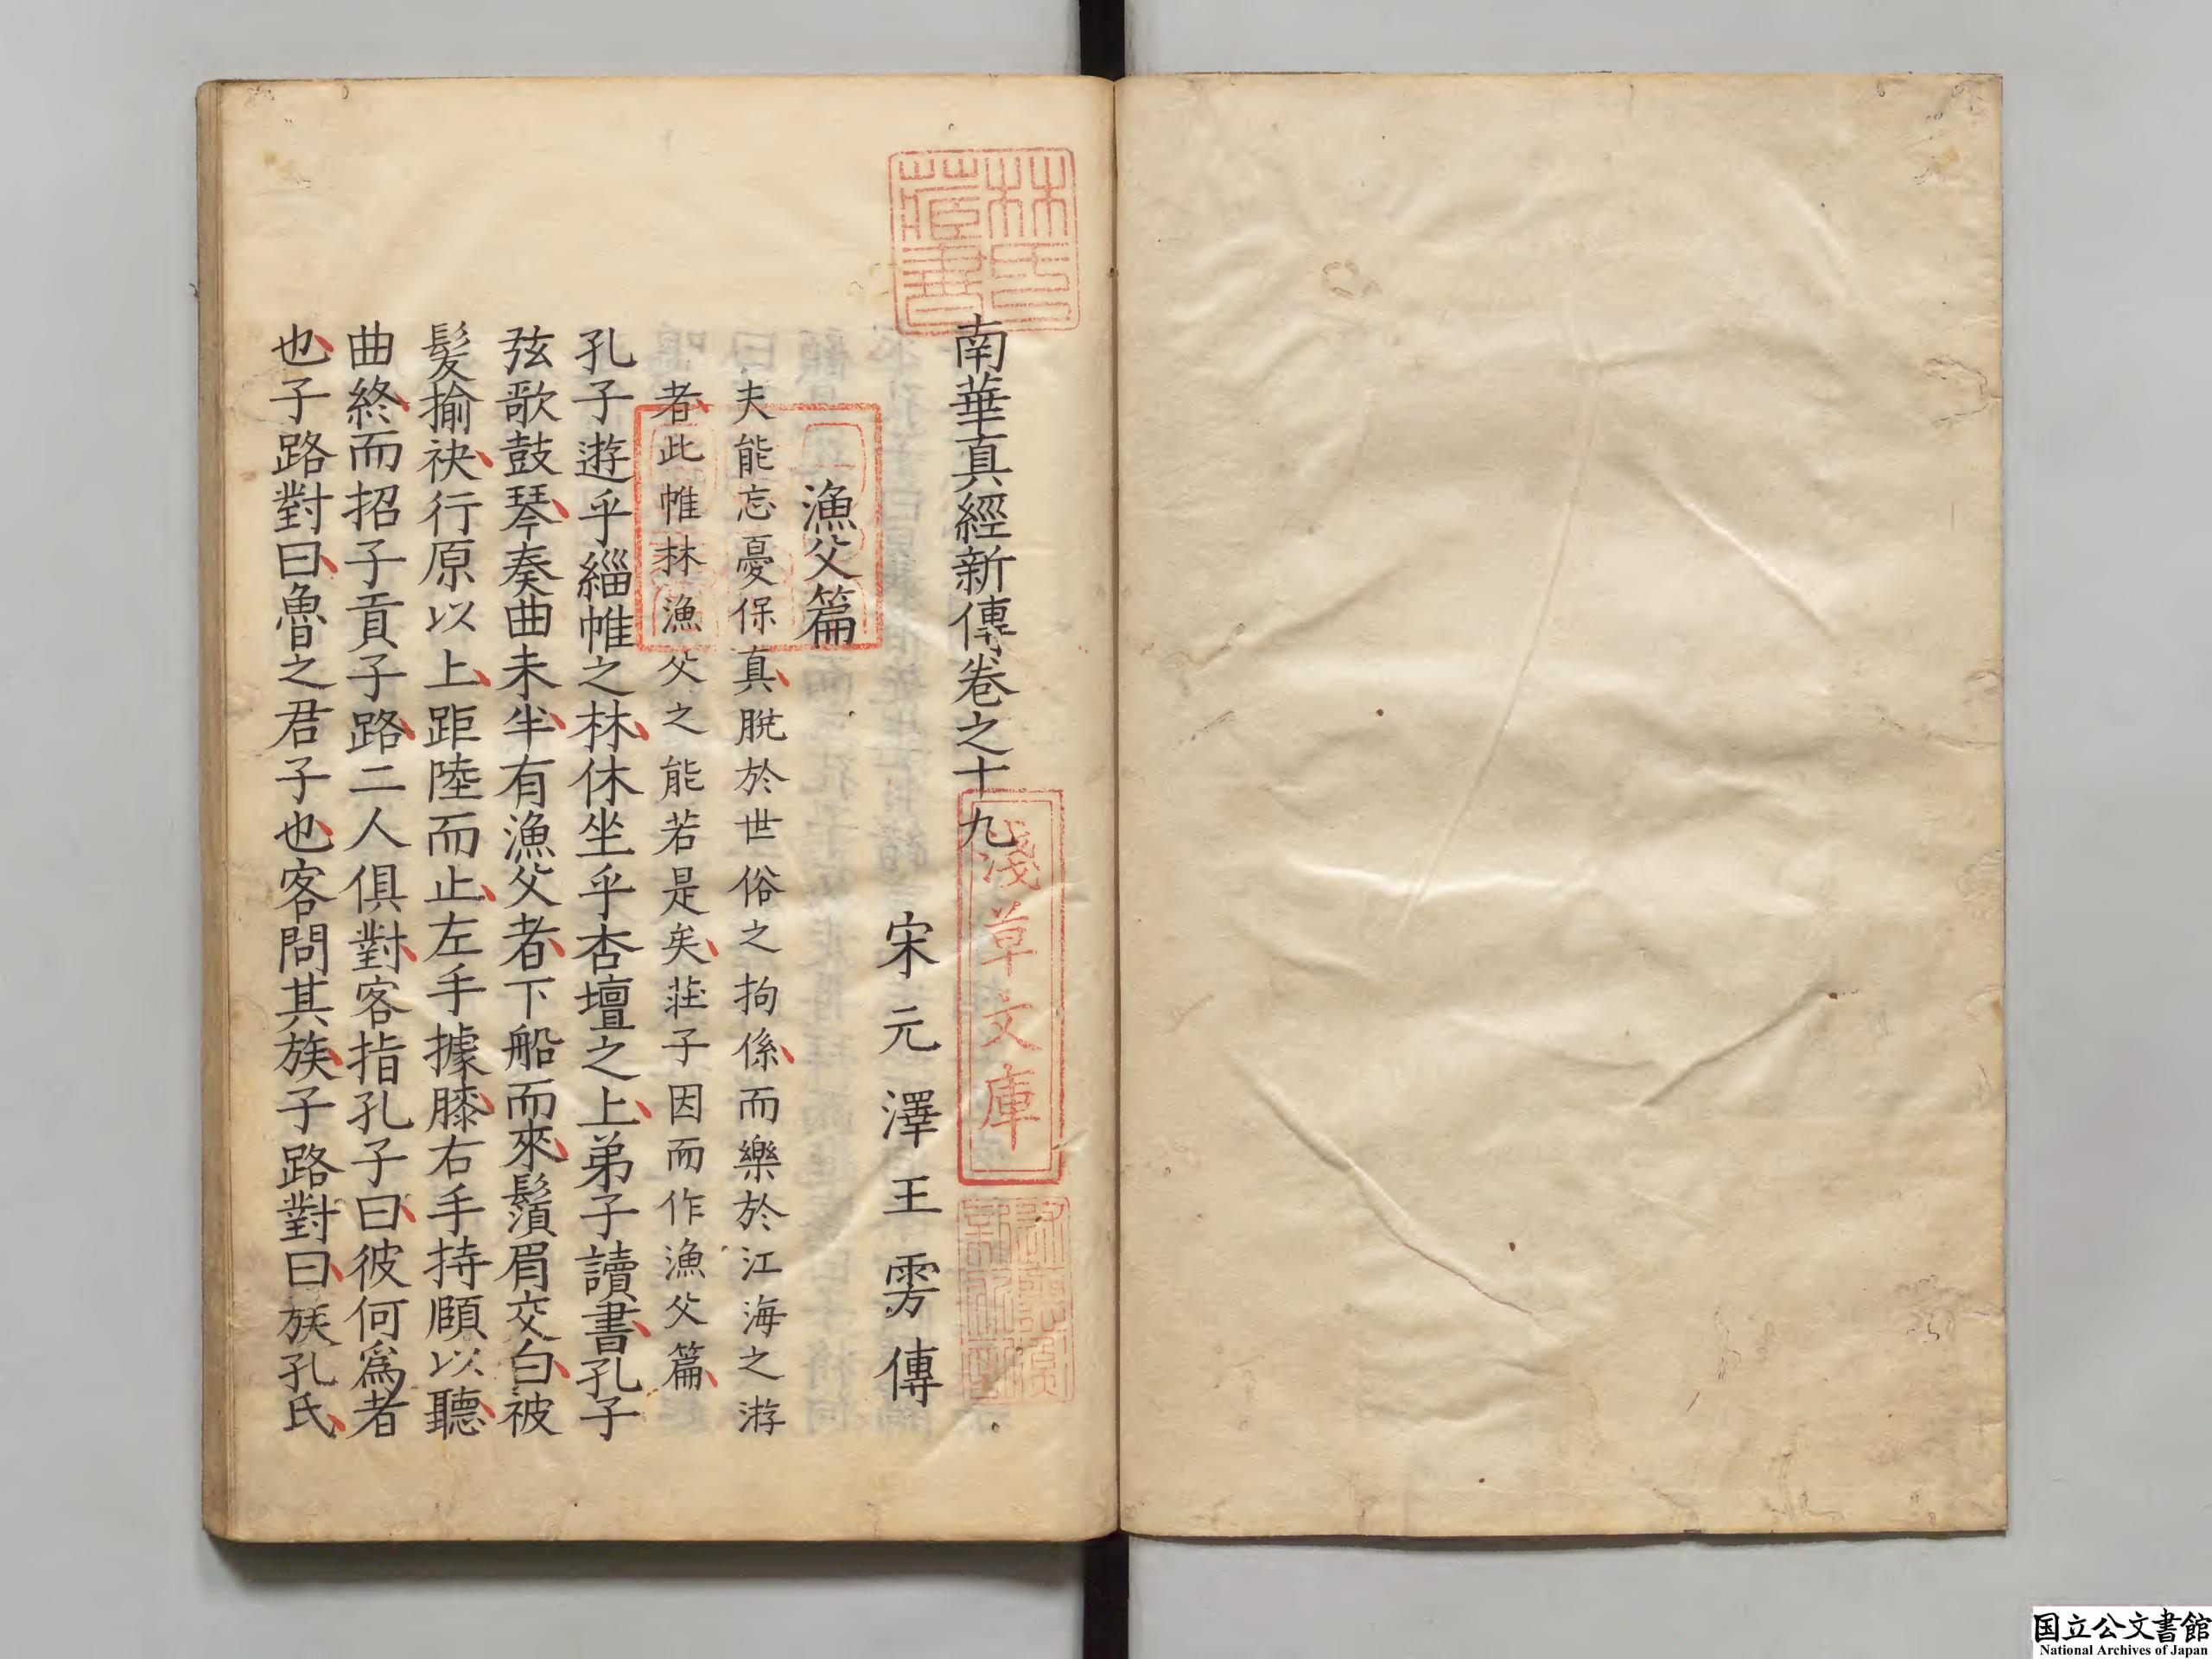 南華真經新傳卷之十九
宋元澤王雱傳
漁父篇
夫能忘憂保真脫於世俗之拘係而樂於江海之游
者此帷林漁父之能若是矣莊子因而作漁父篇
孔子遊乎緇帷之林休坐乎杏壇之上弟子讀書孔子
弦歌鼓琴奏曲未半有漁父者下船而來鬚眉交白被
髮揄袂行原以上距陸而止左手據膝右手持頤以聽
曲終而招子貢子路二人俱對客指孔子曰彼何爲者
也子路對曰魯之君子也客問其族子路對曰族孔氏
林氏藏書
淺草文庫
国立公文書館
National Archives of Japan